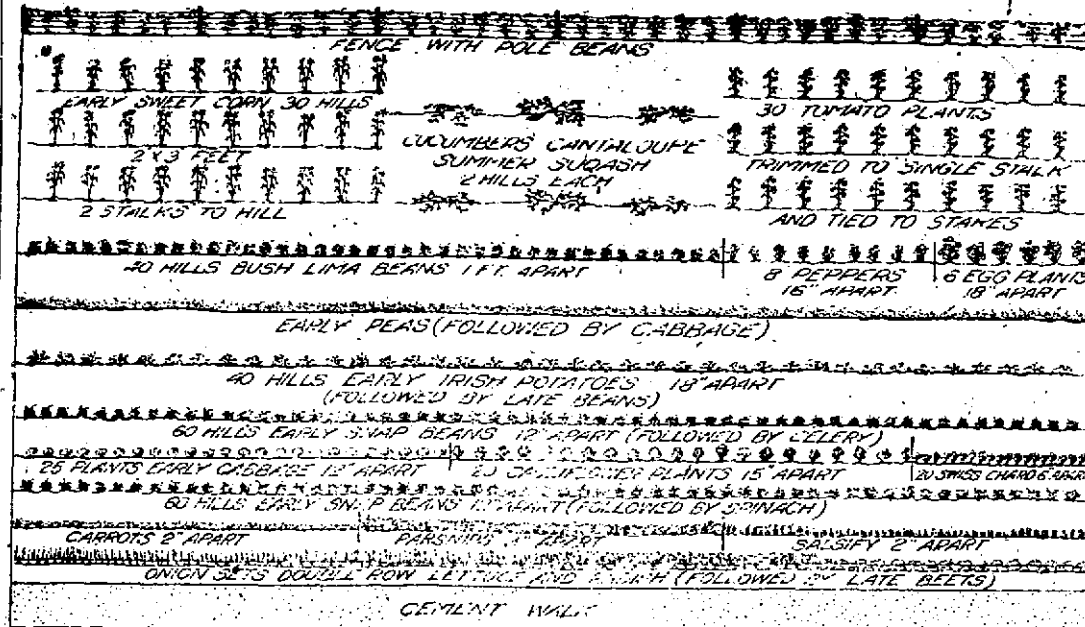 FENCE WITH POLE BEANS
EARLY SWEET CORN 30 HILLS
2 X 3 FEET
2 STALKS TO HILL
CUCUMBERS CANTALOUPE
SUMMER SUQASH
2 HILLS EACH
30 TOMATO PLANTS
TRIMMED TO SINGLE STALK
AND TIED TO STAKES
40 HILLS BUSH LIMA BEANS 1 FT. APART
8 PEPPERS
16" APART
6 EGG PLANTS
18" APART
EARLY PEAS (FOLLOWED BY CABBAGE)
40 HILLS EARLY IRISH POTATOES 18" APART
(FOLLOWED BY LATE BEANS)
60 HILLS EARLY SNAP BEANS 12" APART (FOLLOWED BY CELERY)
25 PLANTS EARLY CABBAGE APART
20 CAULIFLOWER PLANTS 15" APART
20 SWISS CHARD 6" APART
60 HILLS EARLY SNAP BEANS APART (FOLLOWED BY SPINACH)
CARROTS 2" APART
PARSNIPS APART
SALSIFY 2" APART
ONION SETS DOUBLE ROW LETTUCE AND (FOLLOWED BY LATE BEETS)
CEMENT WALK